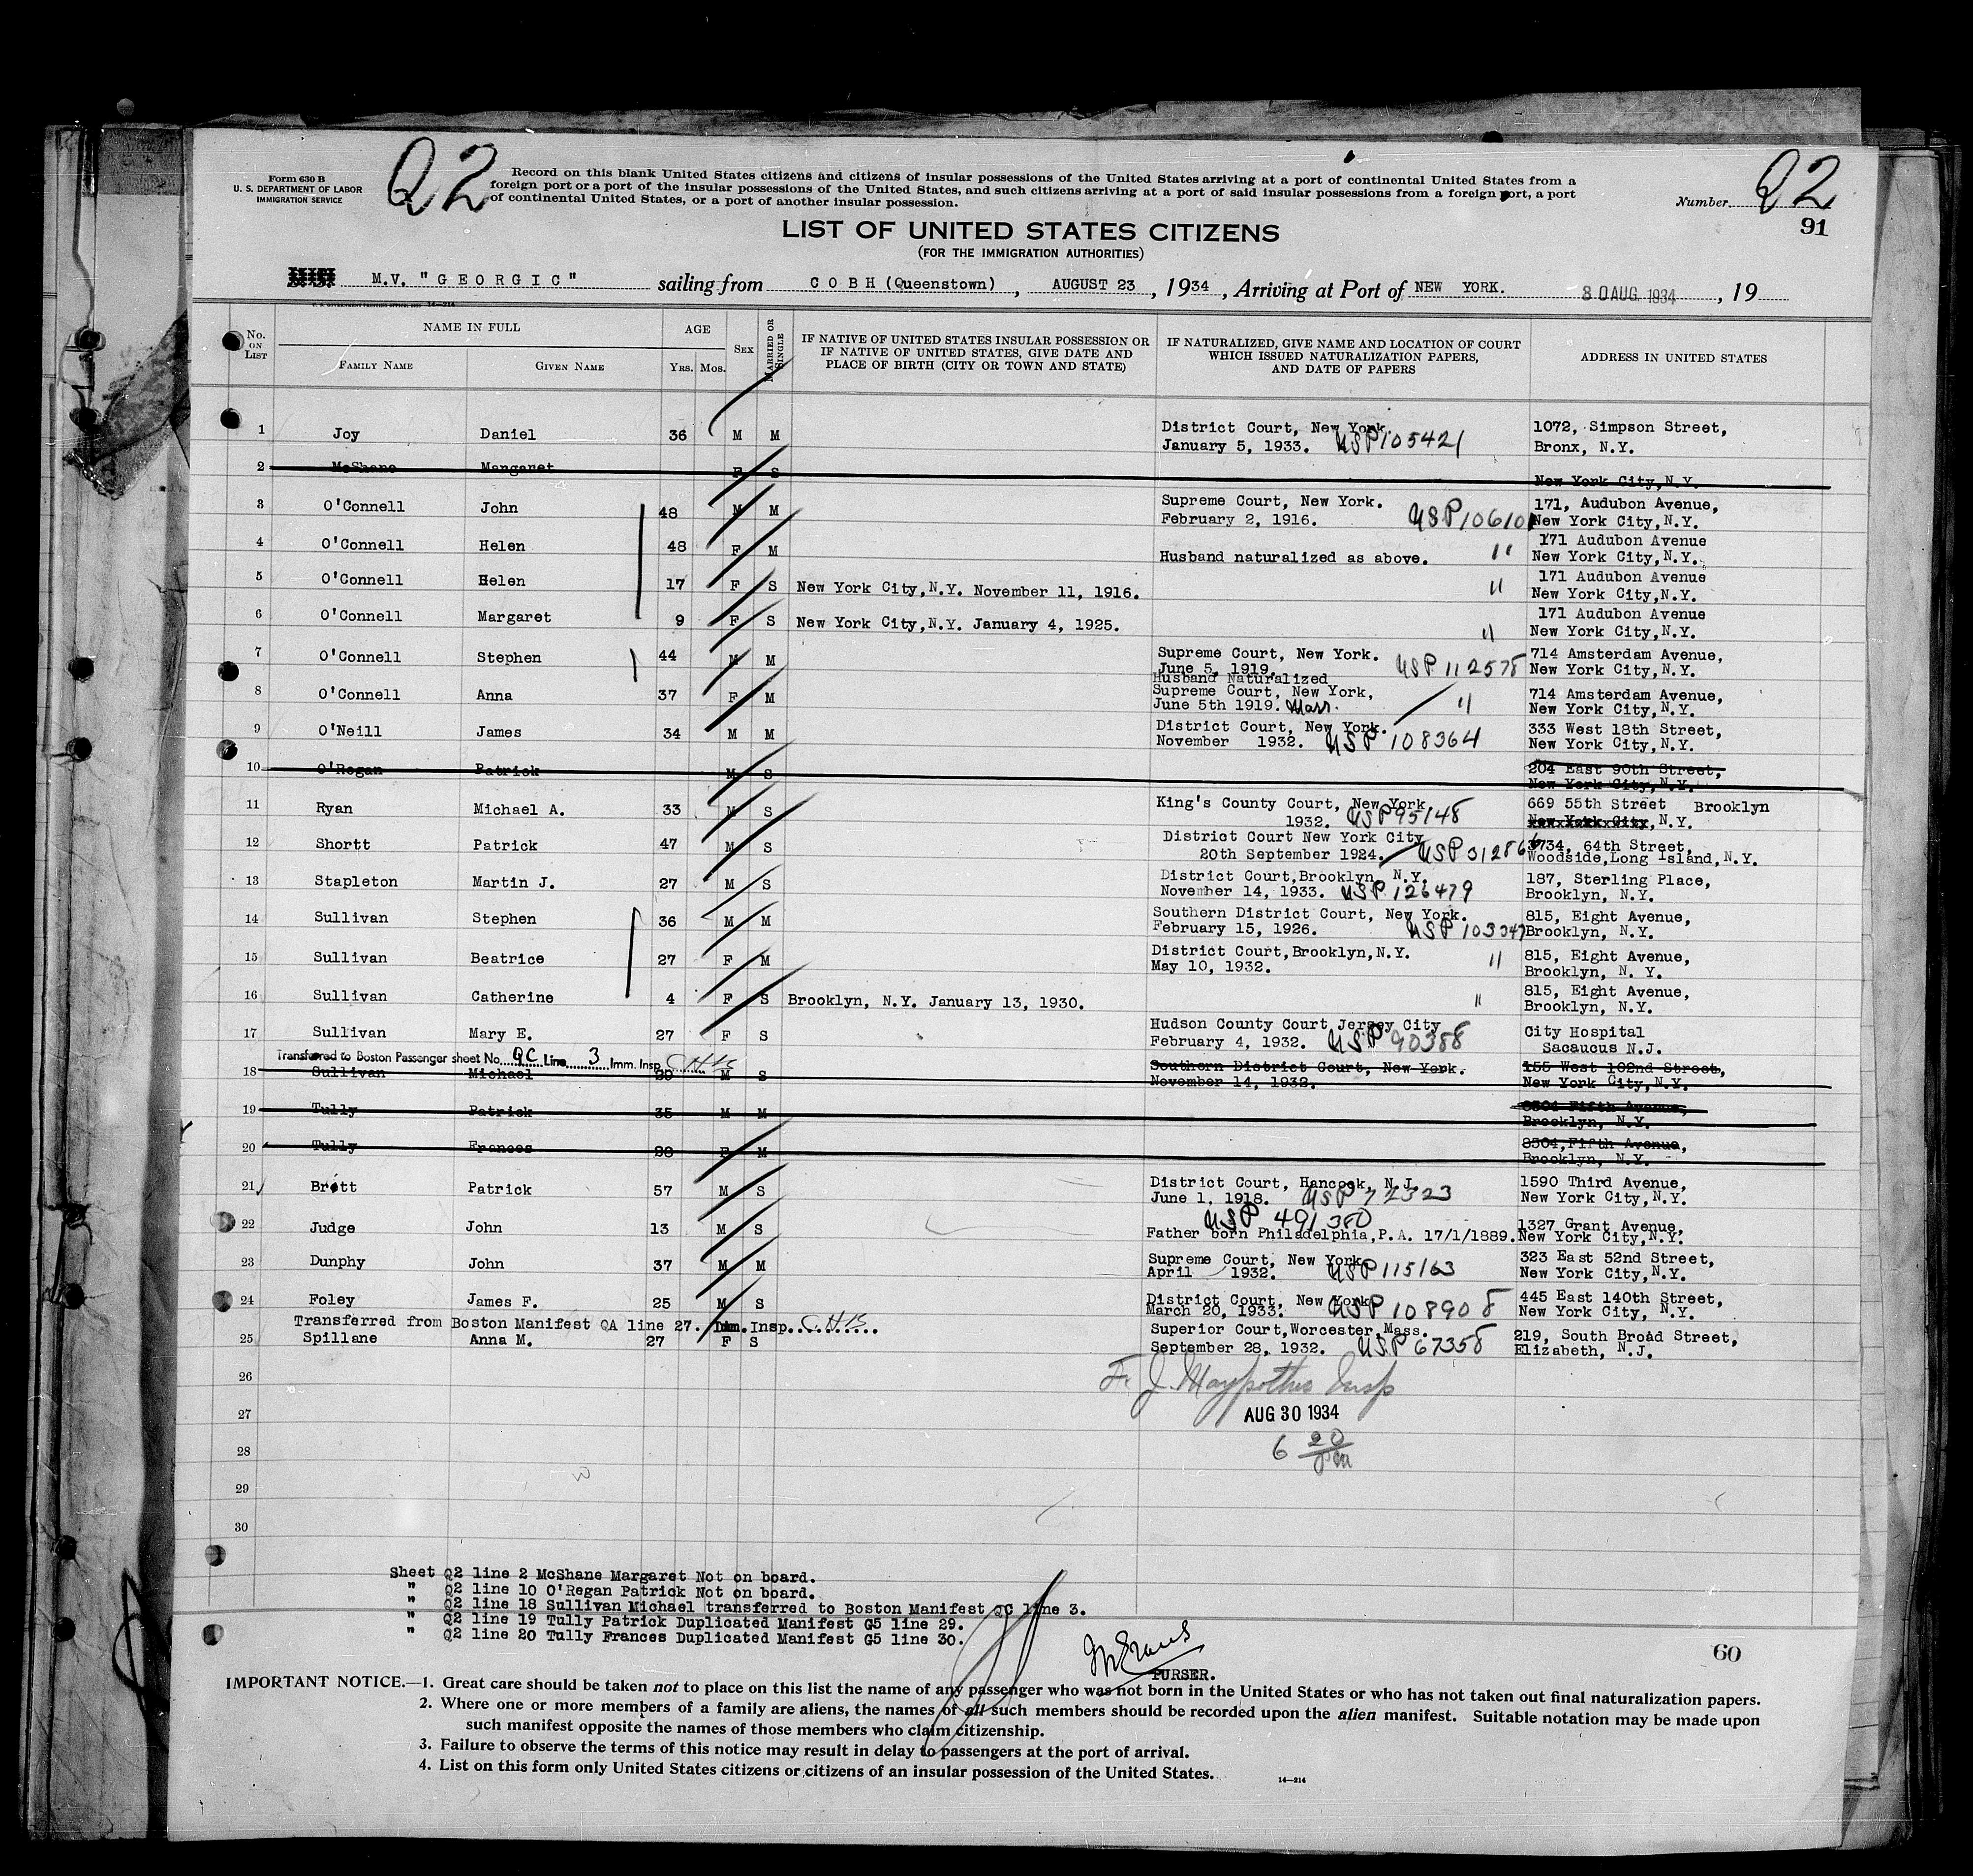 Q2
Q2
Form 630 B
U. S. DEPARTMENT OF LABOR
IMMIGRATION SERVICE
Record on this blank United States citizens and citizens of insular possessions of the United States arriving at a port of continental United States from a
foreign port or a port of the insular possessions of the United States, and such citizens arriving at a port of said insular possessions from a foreign port, a port
of continental United States, or a port of another insular possession.
Number
91
LIST OF UNITED STATES CITIZENS
(FOR THE IMMIGRATION AUTHORITIES)
M.V. "GEORGIC" sailing from COBH (Queenstown), AUGUST 23, 1934, Arriving at Port of NEW YORK. 30 AUG 1934, 19
No. ON LIST
NAME IN FULL
FAMILY NAME GIVEN NAME
AGE
YRS. MOS.
SEX
MARRIED OR SINGLE
IF NATIVE OF UNITED STATES INSULAR POSSESSION OR
IF NATIVE OF UNITED STATES, GIVE DATE AND
PLACE OF BIRTH (CITY OR TOWN AND STATE)
IF NATURALIZED, GIVE NAME AND LOCATION OF COURT
WHICH ISSUED NATURALIZATION PAPERS,
AND DATE OF PAPERS
ADDRESS IN UNITED STATES
1 Joy Daniel 36 M M District Court, New York. 1072, Simpson Street,
January 5, 1933. USP 105421 Bronx, N.Y.
2 McShane Margaret F S New York City, N.Y.
3 O'Connell John 48 M M Supreme Court, New York. 171, Audubon Avenue,
February 2, 1916. USP 106101 New York City, N.Y.
4 O'Connell Helen 48 F M Husband naturalized as above. " 171 Audubon Avenue
New York City, N.Y.
5 O'Connell Helen 17 F S New York City, N.Y. November 11, 1916. " 171 Audubon Avenue
New York City, N.Y.
6 O'Connell Margaret 9 F S New York City, N.Y. January 4, 1925. " 171 Audubon Avenue
New York City, N.Y.
7 O'Connell Stephen 44 M M Supreme Court, New York. 714 Amsterdam Avenue,
June 5, 1919. USP 112578 New York City, N.Y.
Husband Naturalized
8 O'Connell Anna 37 F M Supreme Court, New York, 714 Amsterdam Avenue,
June 5th 1919. Marr. " New York City, N.Y.
9 O'Neill James 34 M M District Court, New York. 333 West 18th Street,
November 1932. USP 108364 New York City, N.Y.
10 O'Regan Patrick M S 204 East 90th Street,
New York City, N.Y.
11 Ryan Michael A. 33 M S King's County Court, New York 669 55th Street Brooklyn
1932. USP 95148 New York City, N.Y.
12 Shortt Patrick 47 M S District Court New York City 3734, 64th Street,
20th September 1924. USP 31286 Woodside, Long Island, N.Y.
13 Stapleton Martin J. 27 M S District Court, Brooklyn, N.Y. 187, Sterling Place,
November 14, 1933. USP 126479 Brooklyn, N.Y.
14 Sullivan Stephen 36 M M Southern District Court, New York. 815, Eight Avenue,
February 15, 1926. USP 103347 Brooklyn, N.Y.
15 Sullivan Beatrice 27 F M District Court, Brooklyn, N.Y. 815, Eight Avenue,
May 10, 1932. " Brooklyn, N. Y.
16 Sullivan Catherine 4 F S Brooklyn, N.Y. January 13, 1930. " 815, Eight Avenue,
Brooklyn, N.Y.
17 Sullivan Mary E. 27 F S Hudson County Court Jersey City City Hospital
February 4, 1932. USP 90388 Sacaucus N.J.
Transferred to Boston Passenger sheet No. QC Line 3 Imm. Insp.
18 Sullivan Michael 29 M S Southern District Court, New York. 155 West 102nd Street,
November 14, 1932. New York City, N.Y.
19 Tully Patrick 35 M M 8504 Fifth Avenue,
Brooklyn, N.Y.
20 Tully Frances 28 F M 8504, Fifth Avenue,
Brooklyn, N.Y.
21 Brott Patrick 57 M S District Court, Hancock, N.J. 1590 Third Avenue,
June 1, 1918. USP 72323 New York City, N.Y.
22 Judge John 13 M S USP 491380 1327 Grant Avenue,
Father born Philadelphia, P.A. 17/1/1889. New York City, N.Y.
23 Dunphy John 37 M M Supreme Court, New York. 323 East 52nd Street,
April 1932. USP 115163 New York City, N.Y.
24 Foley James F. 25 M S District Court, New York 445 East 140th Street,
March 20, 1933. USP 108908 New York City, N.Y.
Transferred from Boston Manifest QA line 27. Imm. Insp.
25 Spillane Anna M. 27 F S Superior Court, Worcester, Mass. 219, South Broad Street,
September 28, 1932. USP 67358 Elizabeth, N.J.
26
27 AUG 30 1934
28 6 20 pm
29
30
Sheet Q2 line 2 McShane Margaret Not on board.
" Q2 line 10 O'Regan Patrick Not on board.
" Q2 line 18 Sullivan Michael transferred to Boston Manifest QC line 3.
" Q2 line 19 Tully Patrick Duplicated Manifest G5 line 29.
" Q2 line 20 Tully Frances Duplicated Manifest G5 line 30.
60
PURSER.
IMPORTANT NOTICE.—1. Great care should be taken not to place on this list the name of any passenger who was not born in the United States or who has not taken out final naturalization papers.
2. Where one or more members of a family are aliens, the names of all such members should be recorded upon the alien manifest. Suitable notation may be made upon
such manifest opposite the names of those members who claim citizenship.
3. Failure to observe the terms of this notice may result in delay to passengers at the port of arrival.
4. List on this form only United States citizens or citizens of an insular possession of the United States.
14—214